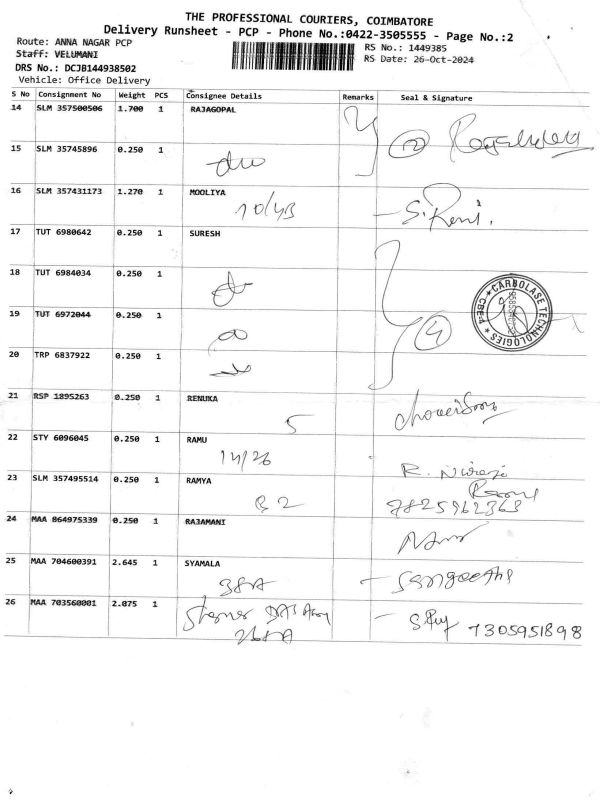 THE PROFESSIONAL COURIERS, COIMBATORE
Delivery Runsheet - PCP - Phone No.:0422-3505555 - Page No.:2
Route: ANNA NAGAR PCP
RS No.: 1449385
Staff: VELUMANI
RS Date: 26-Oct-2024
DRS No.: DCJB144938502
Vehicle: Office Delivery
S No Consignment No Weight PCS Consignee Details Remarks Seal & Signature
14 SLM 357500506 1.700 1 RAJAGOPAL
2
15 SLM 35745896 0.250 1
16 SLM 357431173 1.270 1 MOOLIYA
10/43 S. Reni.
17 TUT 6980642 0.250 1 SURESH
18 TUT 6984034 0.250 1
CARBOLASE TECHNOLOGIES
CBE-4
19 TUT 6972044 0.250 1
4
20 TRP 6837922 0.250 1
21 RSP 1895263 0.250 1 RENUKA
5
22 STY 6096045 0.250 1 RAMU
14/26
23 SLM 357495514 0.250 1 RAMYA
B 2 7825962363
24 MAA 864975339 0.250 1 RAJAMANI
25 MAA 704600391 2.645 1 SYAMALA
38A Sangeetha
26 MAA 703560001 2.075 1
7305951898
268A